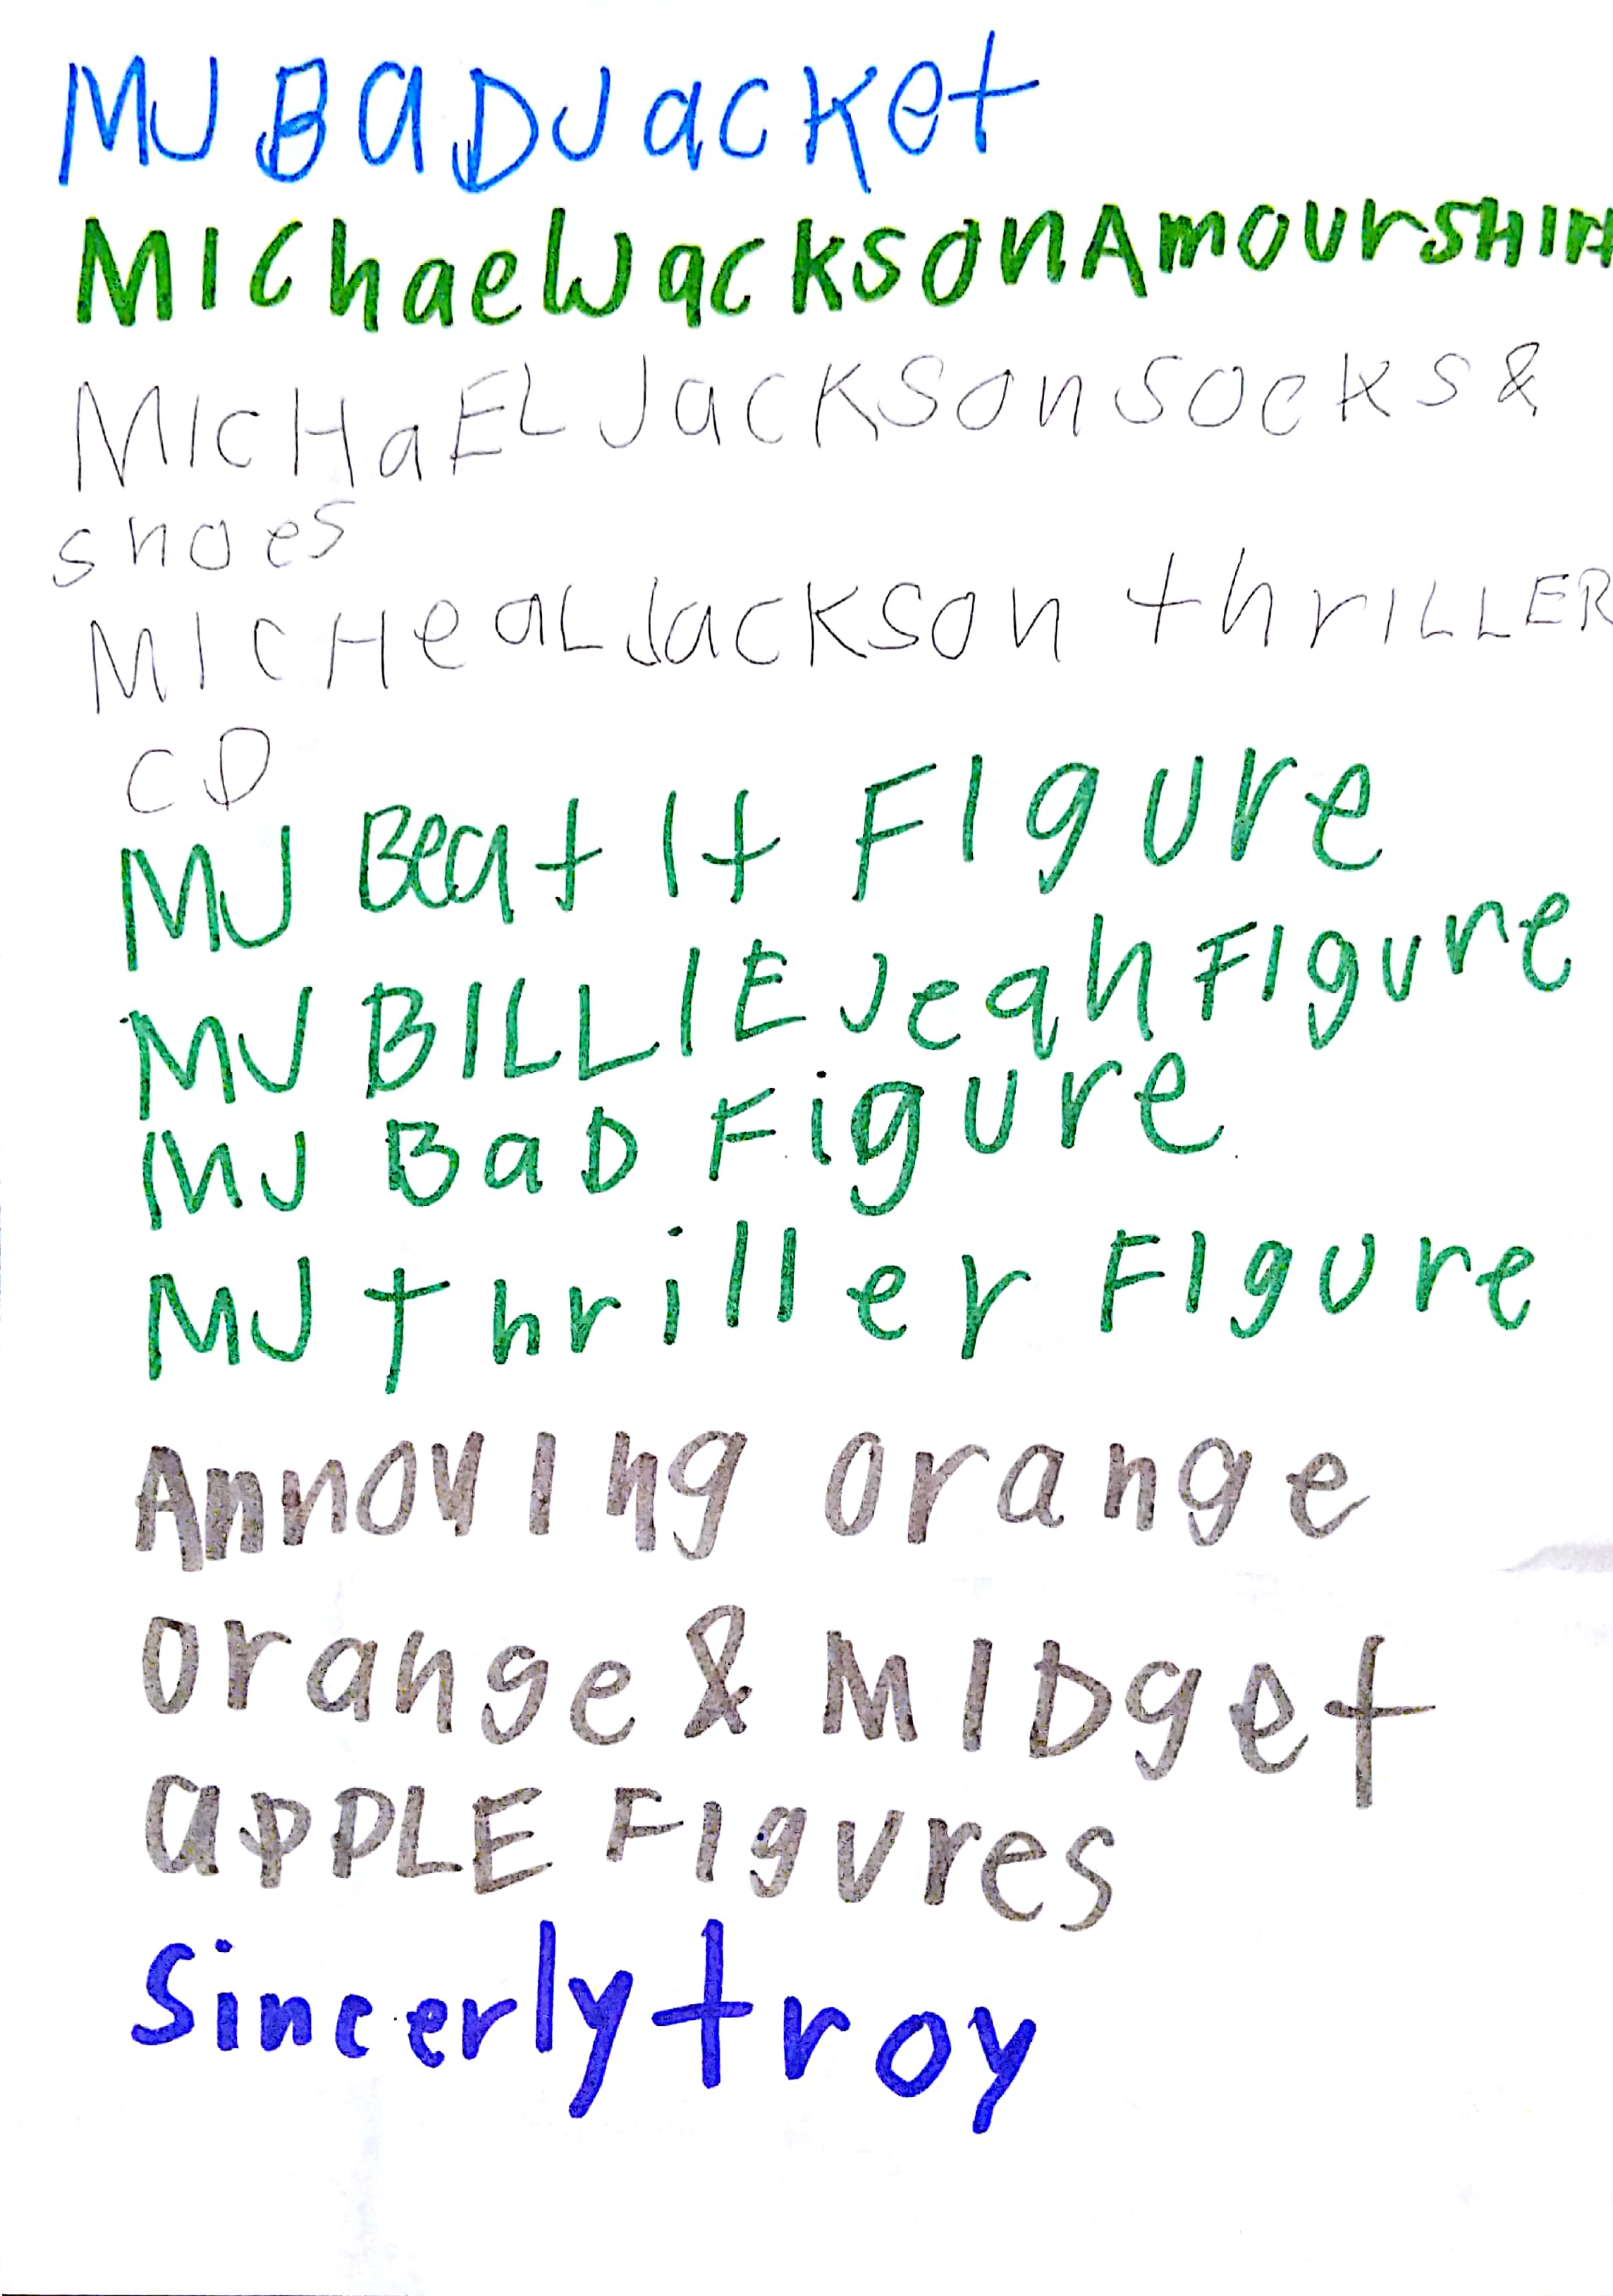 MJ BaD Jacket
MIChael Jackson Amour SHIrt
MICHaEL Jackson socks &
shoes
MICHeaL Jackson thrILLER
CD
MJ Beat It FIgure
MJ BILLIE Jean FIgure
MJ BaD Figure
MJ thriller FIgure
AnnoyIng orange
orange & MIDget
aPPLE FIgures
Sincerly troy